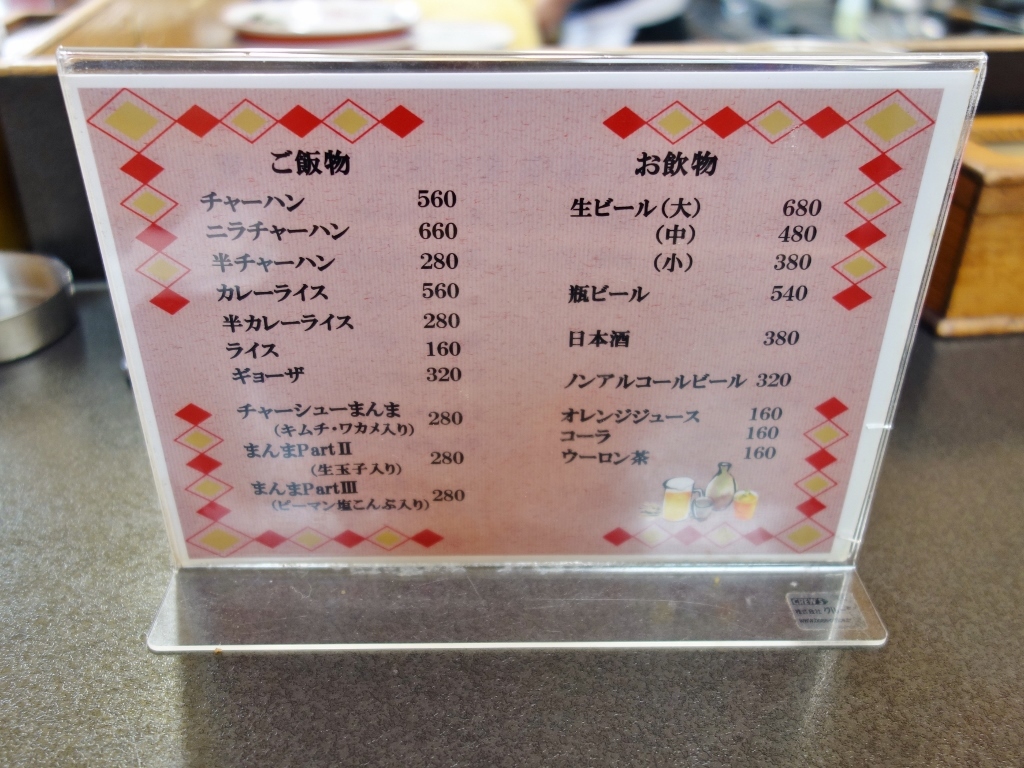 ご飯物
チャーハン 560
ニラチャーハン 660
半チャーハン 280
カレーライス 560
半カレーライス 280
ライス 160
ギョーザ 320
チャーシューまんま 280
(キムチ・ワカメ入り)
まんまPartⅡ 280
(生玉子入り)
まんまPartⅢ 280
(ピーマン塩こんぶ入り)
お飲物
生ビール(大) 680
(中) 480
(小) 380
瓶ビール 540
日本酒 380
ノンアルコールビール 320
オレンジジュース 160
コーラ 160
ウーロン茶 160